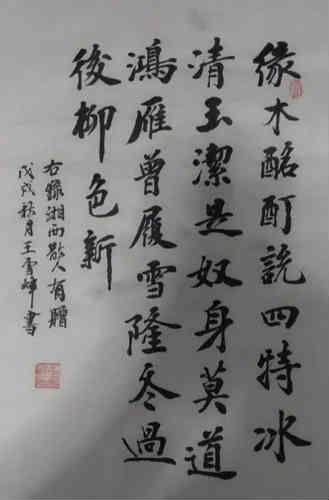 缘木酩酊說四特冰
清玉潔是奴身莫道
鴻雁曾履雪隆冬過
後柳色新
右錄湘西散人有贈
戊戌秋月王雪峰書